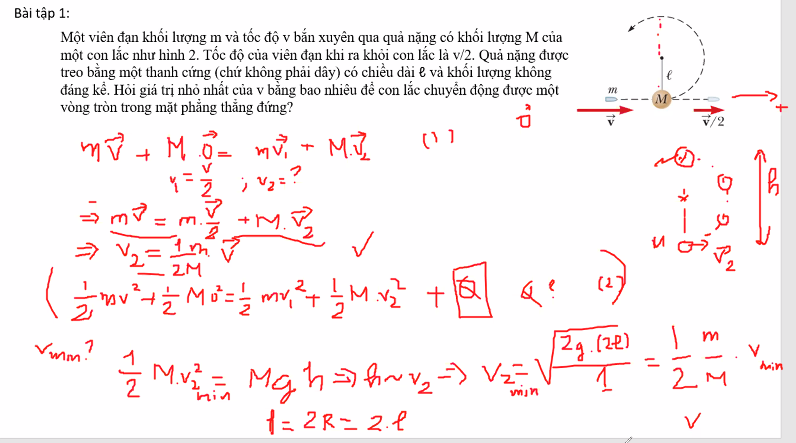 Bài tập 1:
Một viên đạn khối lượng m và tốc độ v bắn xuyên qua quả nặng có khối lượng M của
một con lắc như hình 2. Tốc độ của viên đạn khi ra khỏi con lắc là v/2. Quả nặng được
treo bằng một thanh cứng (chứ không phải dây) có chiều dài ℓ và khối lượng không
đáng kể. Hỏi giá trị nhỏ nhất của v bằng bao nhiêu để con lắc chuyển động được một
vòng tròn trong mặt phẳng thẳng đứng?
ℓ
m
M
v⃗
v⃗/2
+
mv⃗ + M.0⃗ = mv⃗₁ + M.v⃗₂ (1)
v₁ = v/2 ; v₂ = ?
⇒ mv⃗ = m.v⃗/2 + M.v⃗₂
⇒ v₂ = 1m/2M . v⃗ ✓
h
v⃗₂
(1/2 mv² + 1/2 M0² = 1/2 mv₁² + 1/2 M.v₂² + Q Q? (2))
vmin?
1/2 M.v₂²min = Mgh ⇒ h ~ v₂ ⇒ v₂min = √(2g.(2ℓ)/1) = 1/2 m/M . vmin
= 2R = 2.ℓ